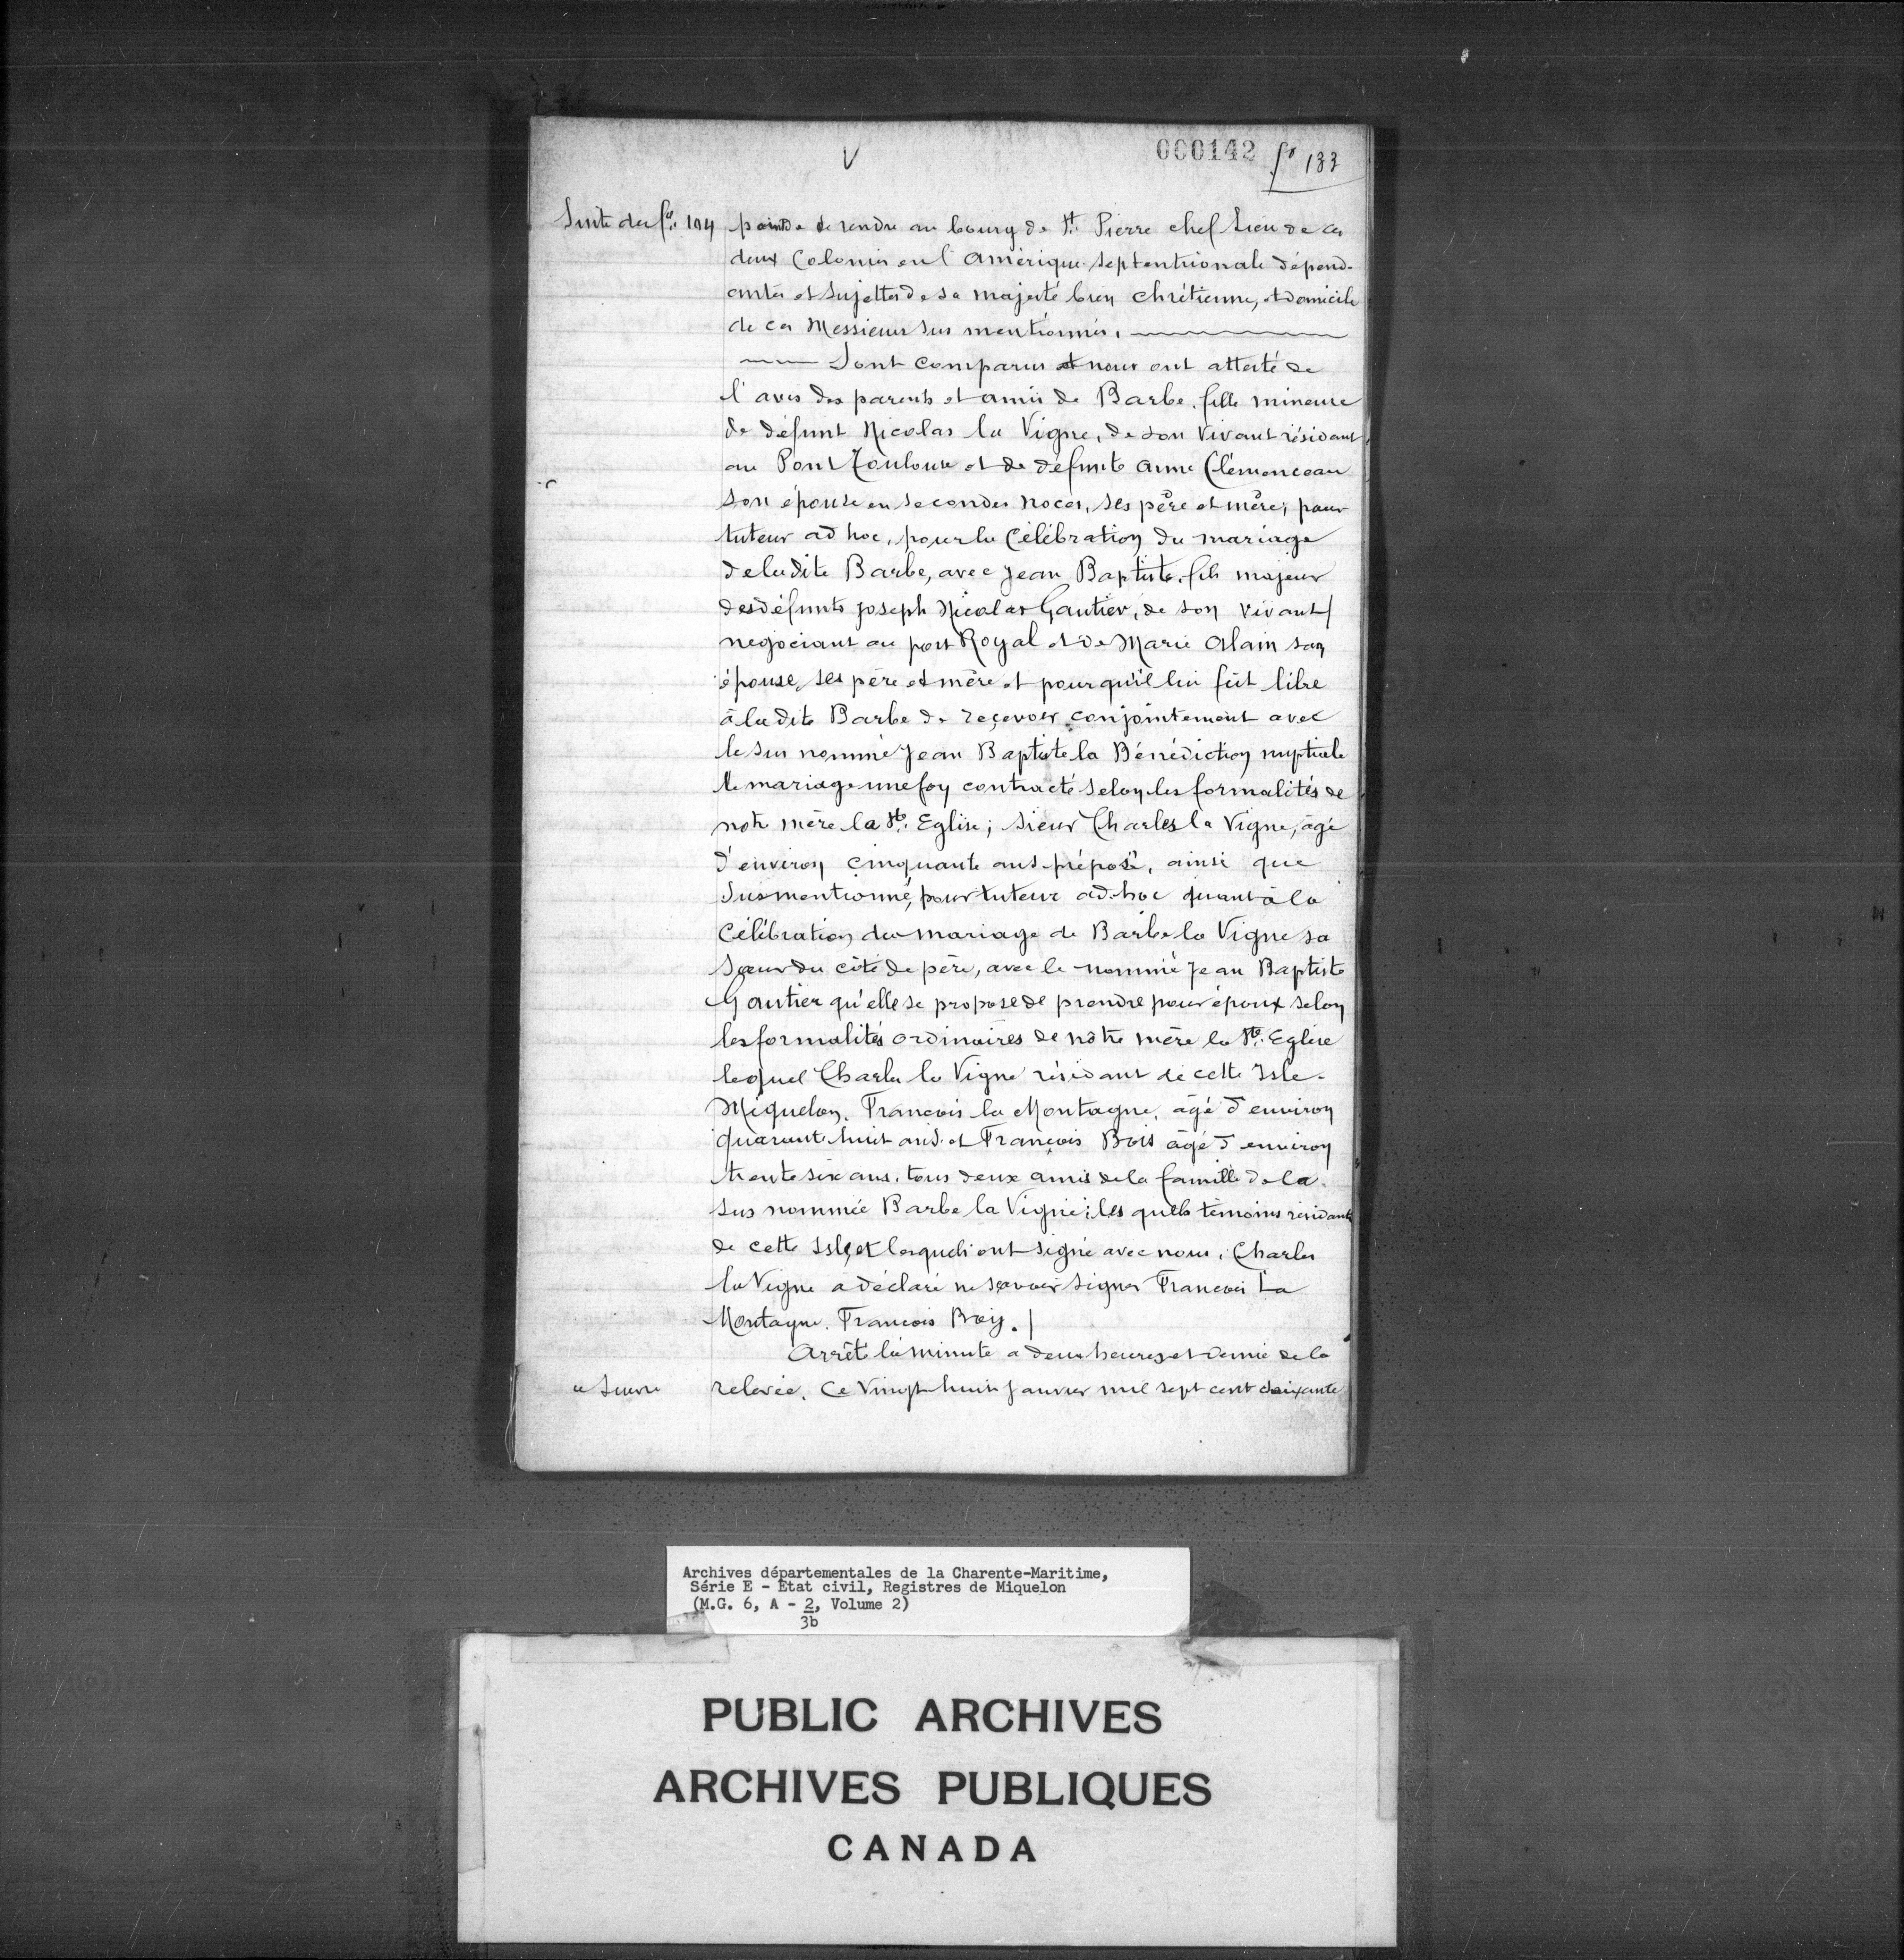 000142 fo 133
V
Suite du fo. 104
pointe de rendre au bourg de St. Pierre chef Lieu de ces
deux Colonies en l'Amérique Septentrionale dépend-
antes et Sujettes de Sa majesté bien chrétienne, et domicile
de ces Messieurs sus mentionnés.
Sont comparus et nous ont attesté de
l'avis des parents et amis de Barbe, fille mineure
de défunt Nicolas la Vigne, de son Vivant résidant
au Pont Toulouse et de défunte Anne Clémenceau
son épouse en secondes noces, ses père et mère; pour
tuteur ad hoc, pour la Célébration du mariage
de la dite Barbe, avec Jean Baptiste, fils majeur
des défunts joseph Nicolas Gautier, de son vivant
negociant au port Royal et de Marie Alain son
épouse, ses père et mère et pour qu'il lui fut libre
à la dite Barbe de reçevoir conjointement avec
le sus nommé Jean Baptiste la Bénédiction nuptiale
le mariage une foy contracté selon les formalités de
notre mère la Ste. Eglise; Sieur Charles la Vigne, âgé
d'environ cinquante ans préposé, ainsi que
Susmentionné, pour tuteur ad-hoc quant à la
Célébration du mariage de Barbe la Vigne sa
Sœur du côté de père, avec le nommé Jean Baptiste
Gautier qu'elle se propose de prendre pour époux selon
les formalités ordinaires de nôtre mère la Ste. Eglise
lequel Charles la Vigne résidant de cette Isle-
Miquelon. Francois la Montagne, âgé d'environ
quarante huit ans et François Bois âgé d'environ
trente six ans, tous deux amis de la famille de la
sus nommée Barbe la Vigne; les quels témoins résidants
de cette Isle, et lesquels ont signé avec nous, Charles
la Vigne a déclaré ne sçavoir signer Francois La
Montagne. Francois Boiy.
Arrêté la minute a deux heures et demie de la
a Suivre
relevée. Ce Vingt huit Janvier mil sept cent soixante
Archives départementales de la Charente-Maritime,
Série E - État civil, Registres de Miquelon
(M.G. 6, A - 2, Volume 2)
3b
PUBLIC ARCHIVES
ARCHIVES PUBLIQUES
CANADA